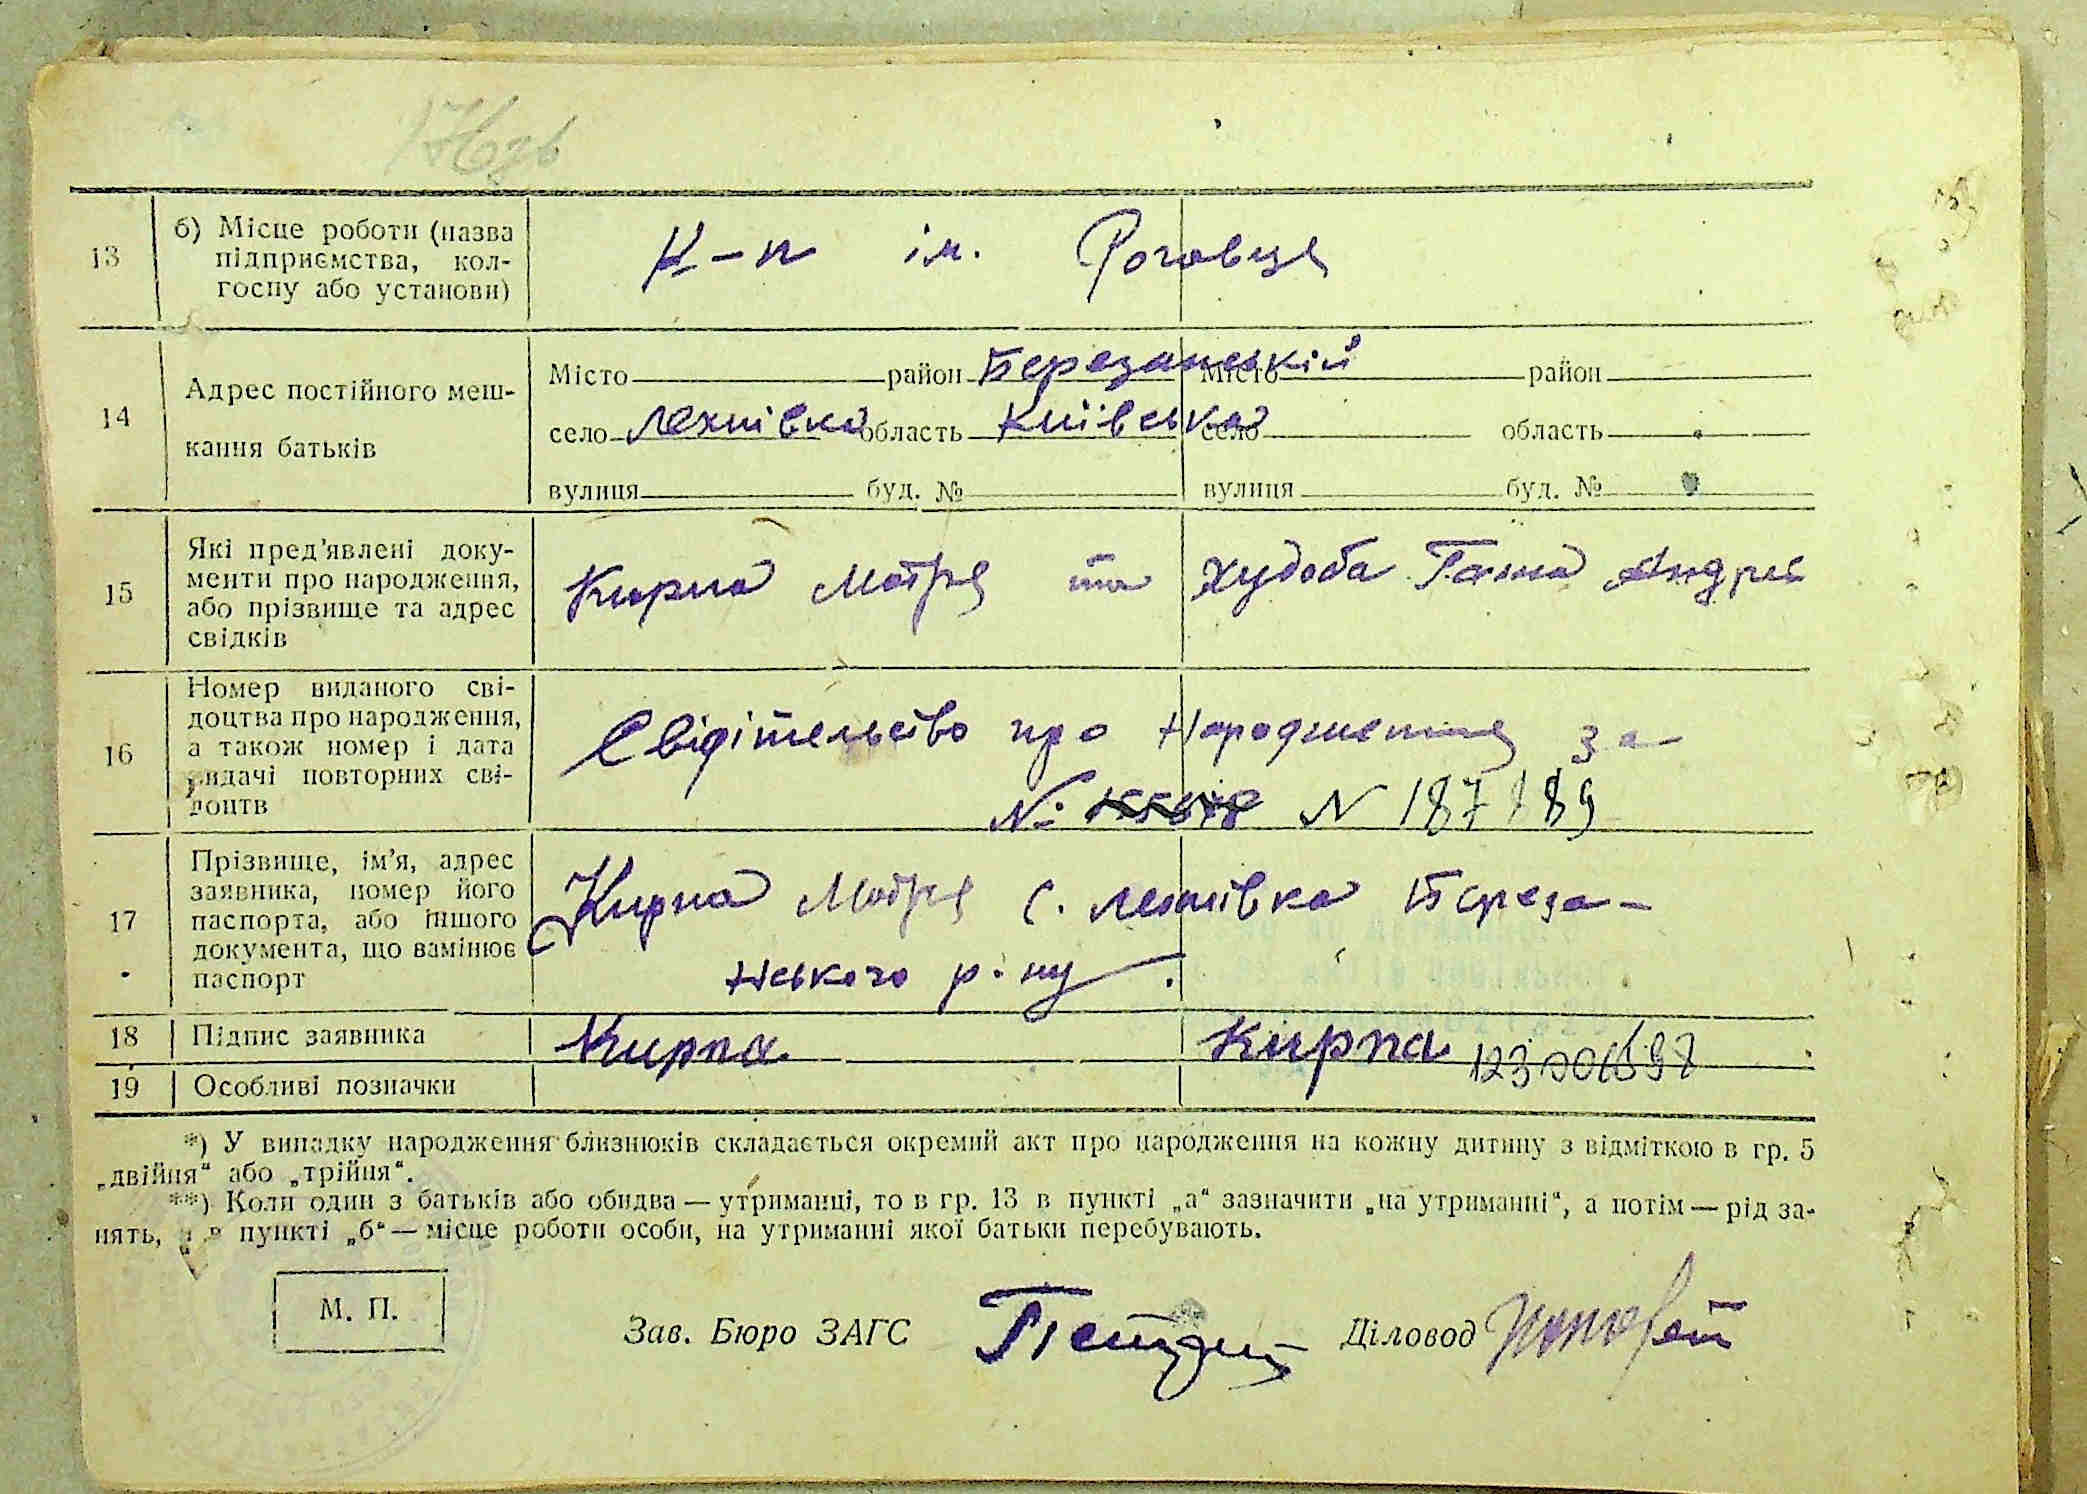 13
б) Місце роботи (назва
підприємства, кол-
госпу або установи)
К-п ім. Роговця
14
Адрес постійного меш-
кання батьків
Місто район Березанській Місто район
село Лехнівка область Київська село область
вулиця буд. № вулиця буд. №
15
Які пред'явлені доку-
менти про народження,
або прізвище та адрес
свідків
Кирпа Мотря та Худоба Ганна Андрія
16
Номер виданого сві-
доцтва про народження,
а також номер і дата
видачі повторних сві-
доцтв
Свідітельство про народження за
№: N 187189
17
Прізвище, ім'я, адрес
заявника, номер його
паспорта, або іншого
документа, що замінює
паспорт
Кирпа Мотря с. Лехнівка Береза-
нського р-ну.
18 Підпис заявника Кирпа Кирпа
19 Особливі позначки
*) У випадку народження близнюків складається окремий акт про народження на кожну дитину з відміткою в гр. 5
„двійня“ або „трійня“.
**) Коли один з батьків або обидва — утриманці, то в гр. 13 в пункті „а“ зазначити „на утриманні“, а потім — рід за-
нять, а в пункті „б“ — місце роботи особи, на утриманні якої батьки перебувають.
М. П.
Зав. Бюро ЗАГС Діловод